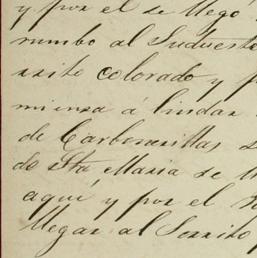 y por el se llegó
rumbo al Sudueste
rrito colorado y p
mienza á lindar
de Carboneritas
do Sta Maria se
aquí y por el
llegar al Serrito